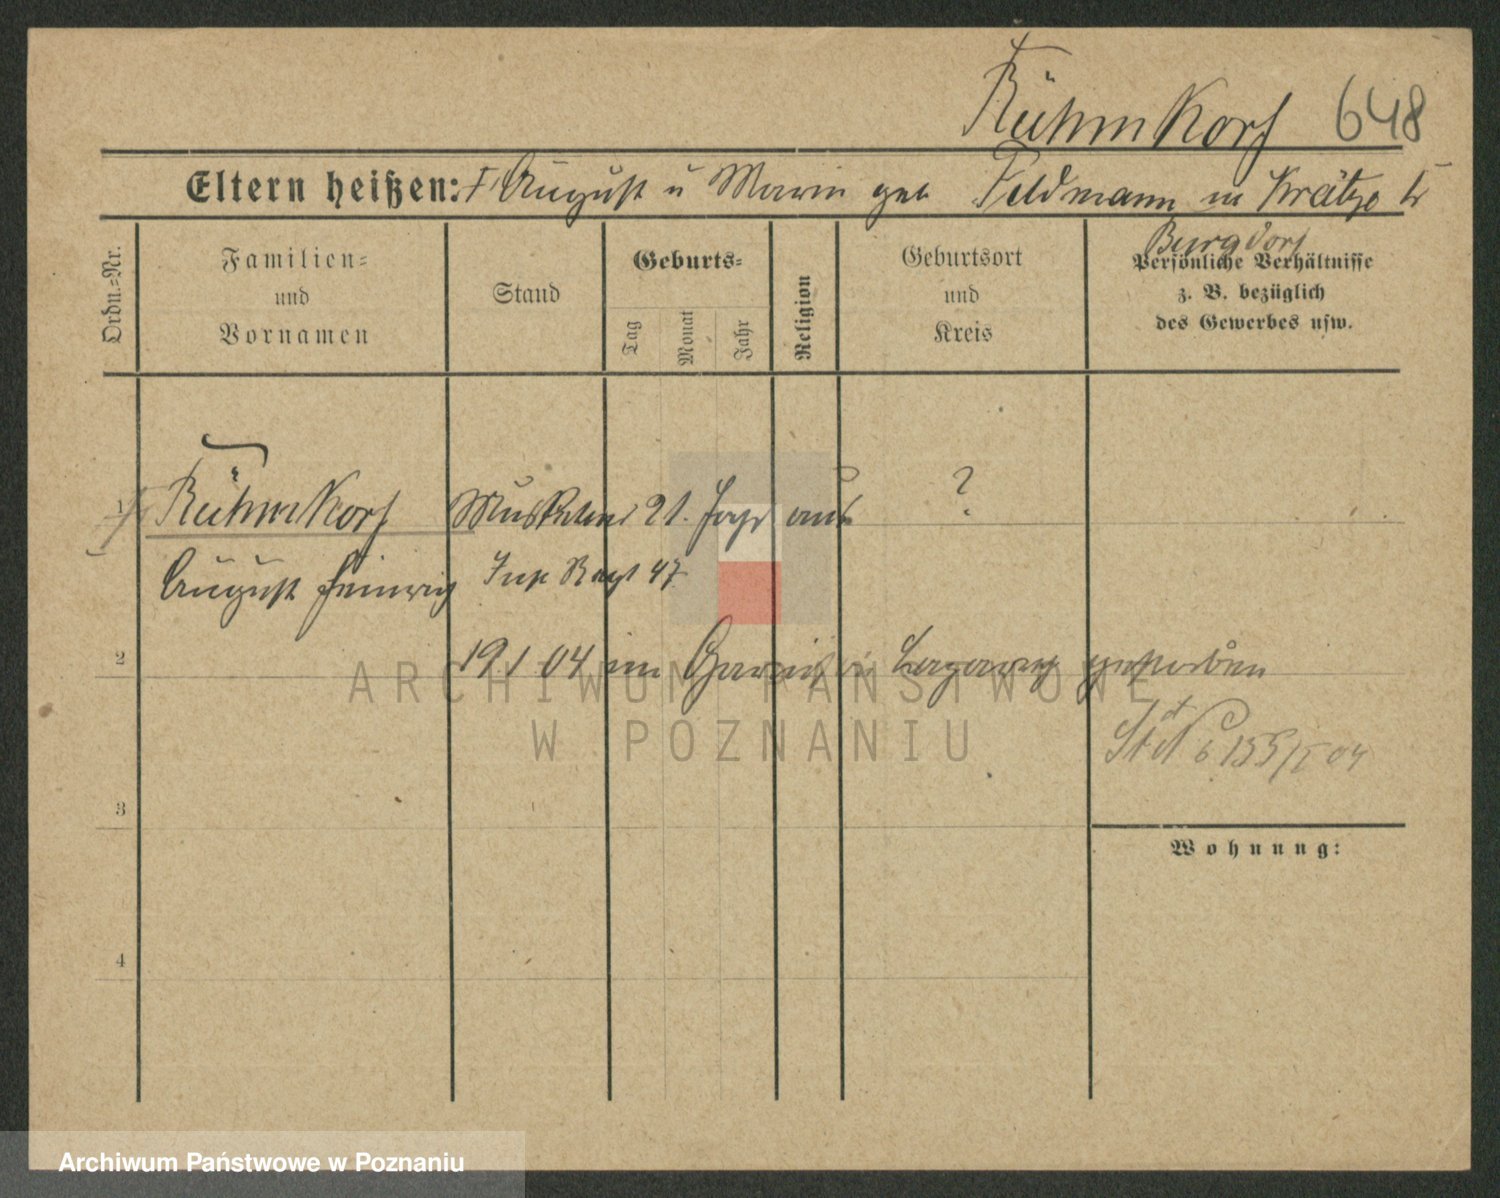 Rühmkorf 648
Eltern heißen: August u Marie geb Feldmann in Krätze Kr
Burgdorf
Ordn.-Nr.
Familien-
und
Vornamen
Stand
Geburts-
Tag
Monat
Jahr
Religion
Geburtsort
und
Kreis
Persönliche Verhältnisse
z. B. bezüglich
des Gewerbes usw.
1 Rühmkorf Musketier 21 Jahr aus ?
August Heinrich Inf Regt 47
2 19 1 04 im Garnis Lazareth gestorben
155/ 04
3
Wohnung:
4
ARCHIWUM PAŃSTWOWE
W POZNANIU
Archiwum Państwowe w Poznaniu